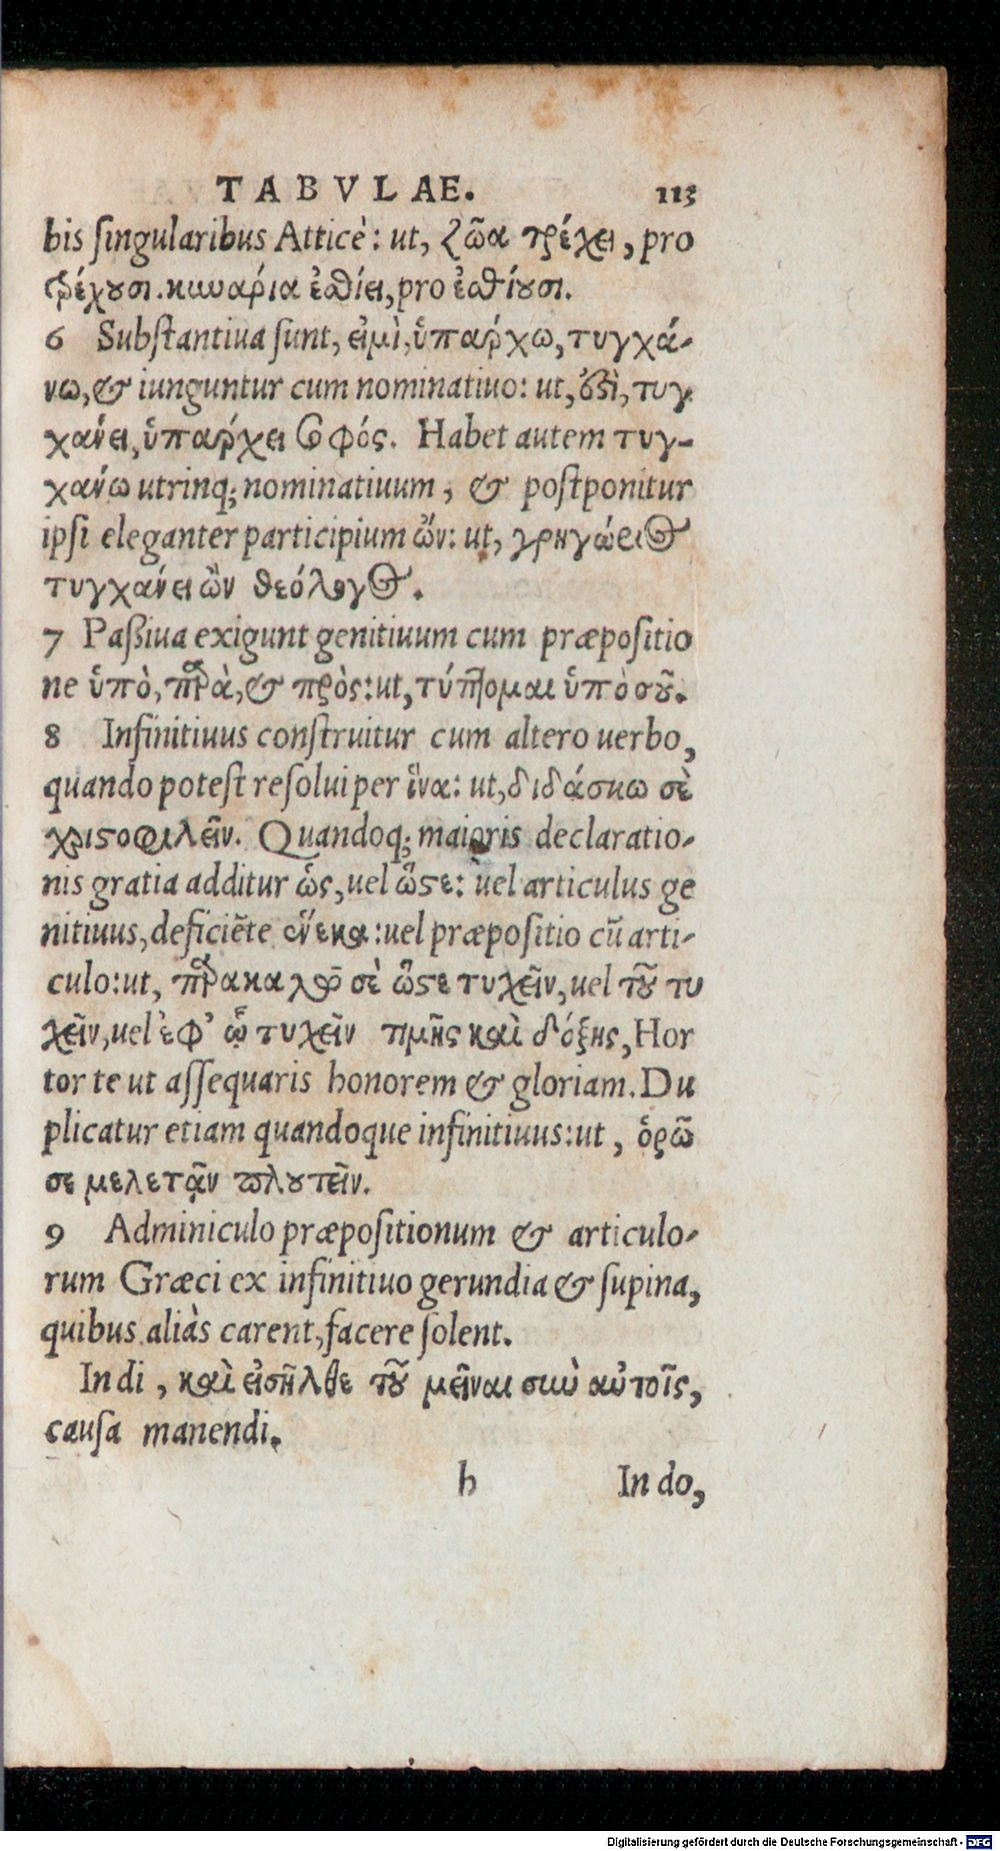 TABVLAE. 113
bis ſingularibus Atticè: ut, ζῶα τρέχει, pro
τρέχουσι. κυνάρια ἐσθίει, pro ἐσθίουσι.
6 Subſtantiua ſunt, εἰμὶ, ὑπάρχω, τυγχά-
νω, & iunguntur cum nominatiuo: ut, ἐστὶ, τυγ
χάνει, ὑπάρχει σοφός. Habet autem τυγ-
χάνω utrinq; nominatiuum, & poſtponitur
ipſi eleganter participium ὤν: ut, γρηγώριος
τυγχάνει ὢν θεόλογος.
7 Paßiua exigunt genitiuum cum præpoſitio
ne ὑπὸ, παρὰ, & πρὸς: ut, τύπτομαι ὑπὸ σοῦ.
8 Infinitiuus conſtruitur cum altero uerbo,
quando poteſt reſolui per ἵνα: ut, διδάσκω σὲ
χριστοφιλεῖν. Quandoq; maioris declaratio-
nis gratia additur ὡς, uel ὥστε: uel articulus ge
nitiuus, deficiẽte ἕνεκα: uel præpoſitio cũ arti-
culo: ut, παρακαλῶ σὲ ὥστε τυχεῖν, uel τοῦ τυ
χεῖν, uel ἐφ' ᾧ τυχεῖν τιμῆς καὶ δόξης, Hor
tor te ut aſſequaris honorem & gloriam. Du
plicatur etiam quandoque infinitiuus: ut, ὁρῶ
σε μελετᾷν πλουτεῖν.
9 Adminiculo præpoſitionum & articulo-
rum Græci ex infinitiuo gerundia & ſupina,
quibus aliàs carent, facere ſolent.
In di, καὶ εἰσῆλθε τοῦ μεῖναι σὺν αὐτοῖς,
cauſa manendi.
h In do,
Digitalisierung gefördert durch die Deutsche Forschungsgemeinschaft - DFG